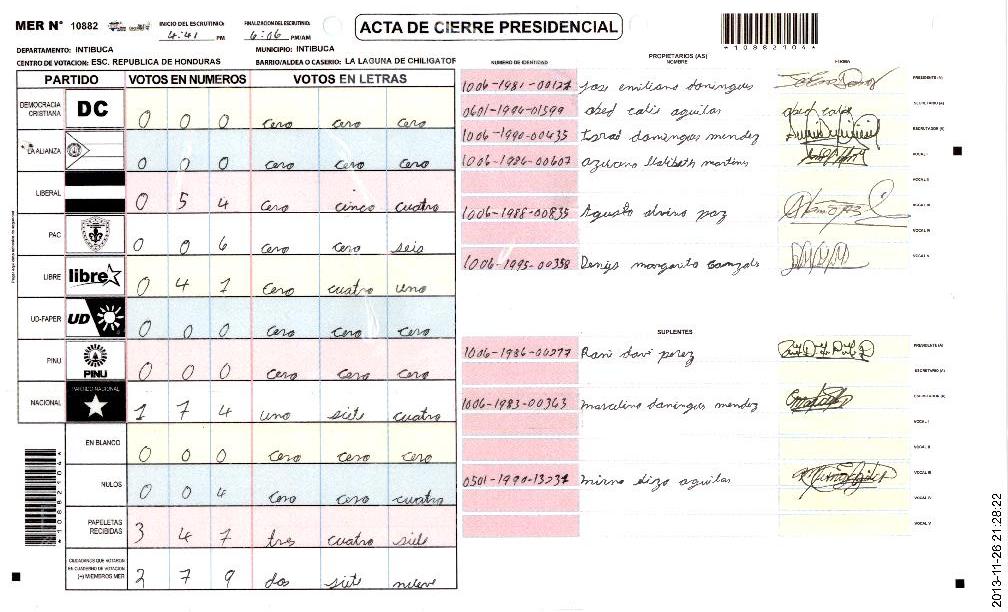 MER N° 10882
INICIO DEL ESCRUTINIO: 4:41 PM
FINALIZACION DEL ESCRUTINIO: 6:06 PM/AM
ACTA DE CIERRE PRESIDENCIAL
*10882104*
DEPARTAMENTO: INTIBUCA
MUNICIPIO: INTIBUCA
CENTRO DE VOTACION: ESC. REPUBLICA DE HONDURAS
BARRIO/ALDEA O CASERIO: LA LAGUNA DE CHILIGATOR
PARTIDO VOTOS EN NUMEROS VOTOS EN LETRAS
DEMOCRACIA CRISTIANA DC 0 0 0 cero cero cero
LA ALIANZA 0 0 0 cero cero cero
LIBERAL 0 5 4 cero cinco cuatro
PAC 0 0 6 cero cero seis
LIBRE libre 0 4 1 cero cuatro uno
UD-FAPER UD 0 0 0 cero cero cero
PINU PINU 0 0 0 cero cero cero
NACIONAL PARTIDO NACIONAL 1 7 4 uno siete cuatro
EN BLANCO 0 0 0 cero cero cero
NULOS 0 0 4 cero cero cuatro
PAPELETAS RECIBIDAS 3 4 7 tres cuatro siete
CIUDADANOS QUE VOTARON EN CUADERNO DE VOTACION (+) MIEMBROS MER 2 7 9 dos siete nueve
*10882104*
PROPRIETARIOS (AS)
NUMERO DE IDENTIDAD NOMBRE FIRMA
1006-1981-00127 Jose emiliano domingues PRESIDENTE (A)
0601-1994-01599 obed calis aguilar SECRETARIO (A)
1006-1990-00435 domingues mendez ESCRUTADOR (A)
1006-1986-00607 martines VOCAL I
VOCAL II
1006-1988-00835 Agusto paz VOCAL III
VOCAL IV
1006-1995-00358 Denys margarita Gonzales VOCAL V
SUPLENTES
1006-1986-00277 Rani davi perez PRESIDENTE (A)
SECRETARIO (A)
1006-1983-00363 marcelino domingues mendez ESCRUTADOR (A)
VOCAL I
VOCAL II
0501-1990-13231 aguilar VOCAL III
VOCAL IV
VOCAL V
2013-11-26 21:28:22